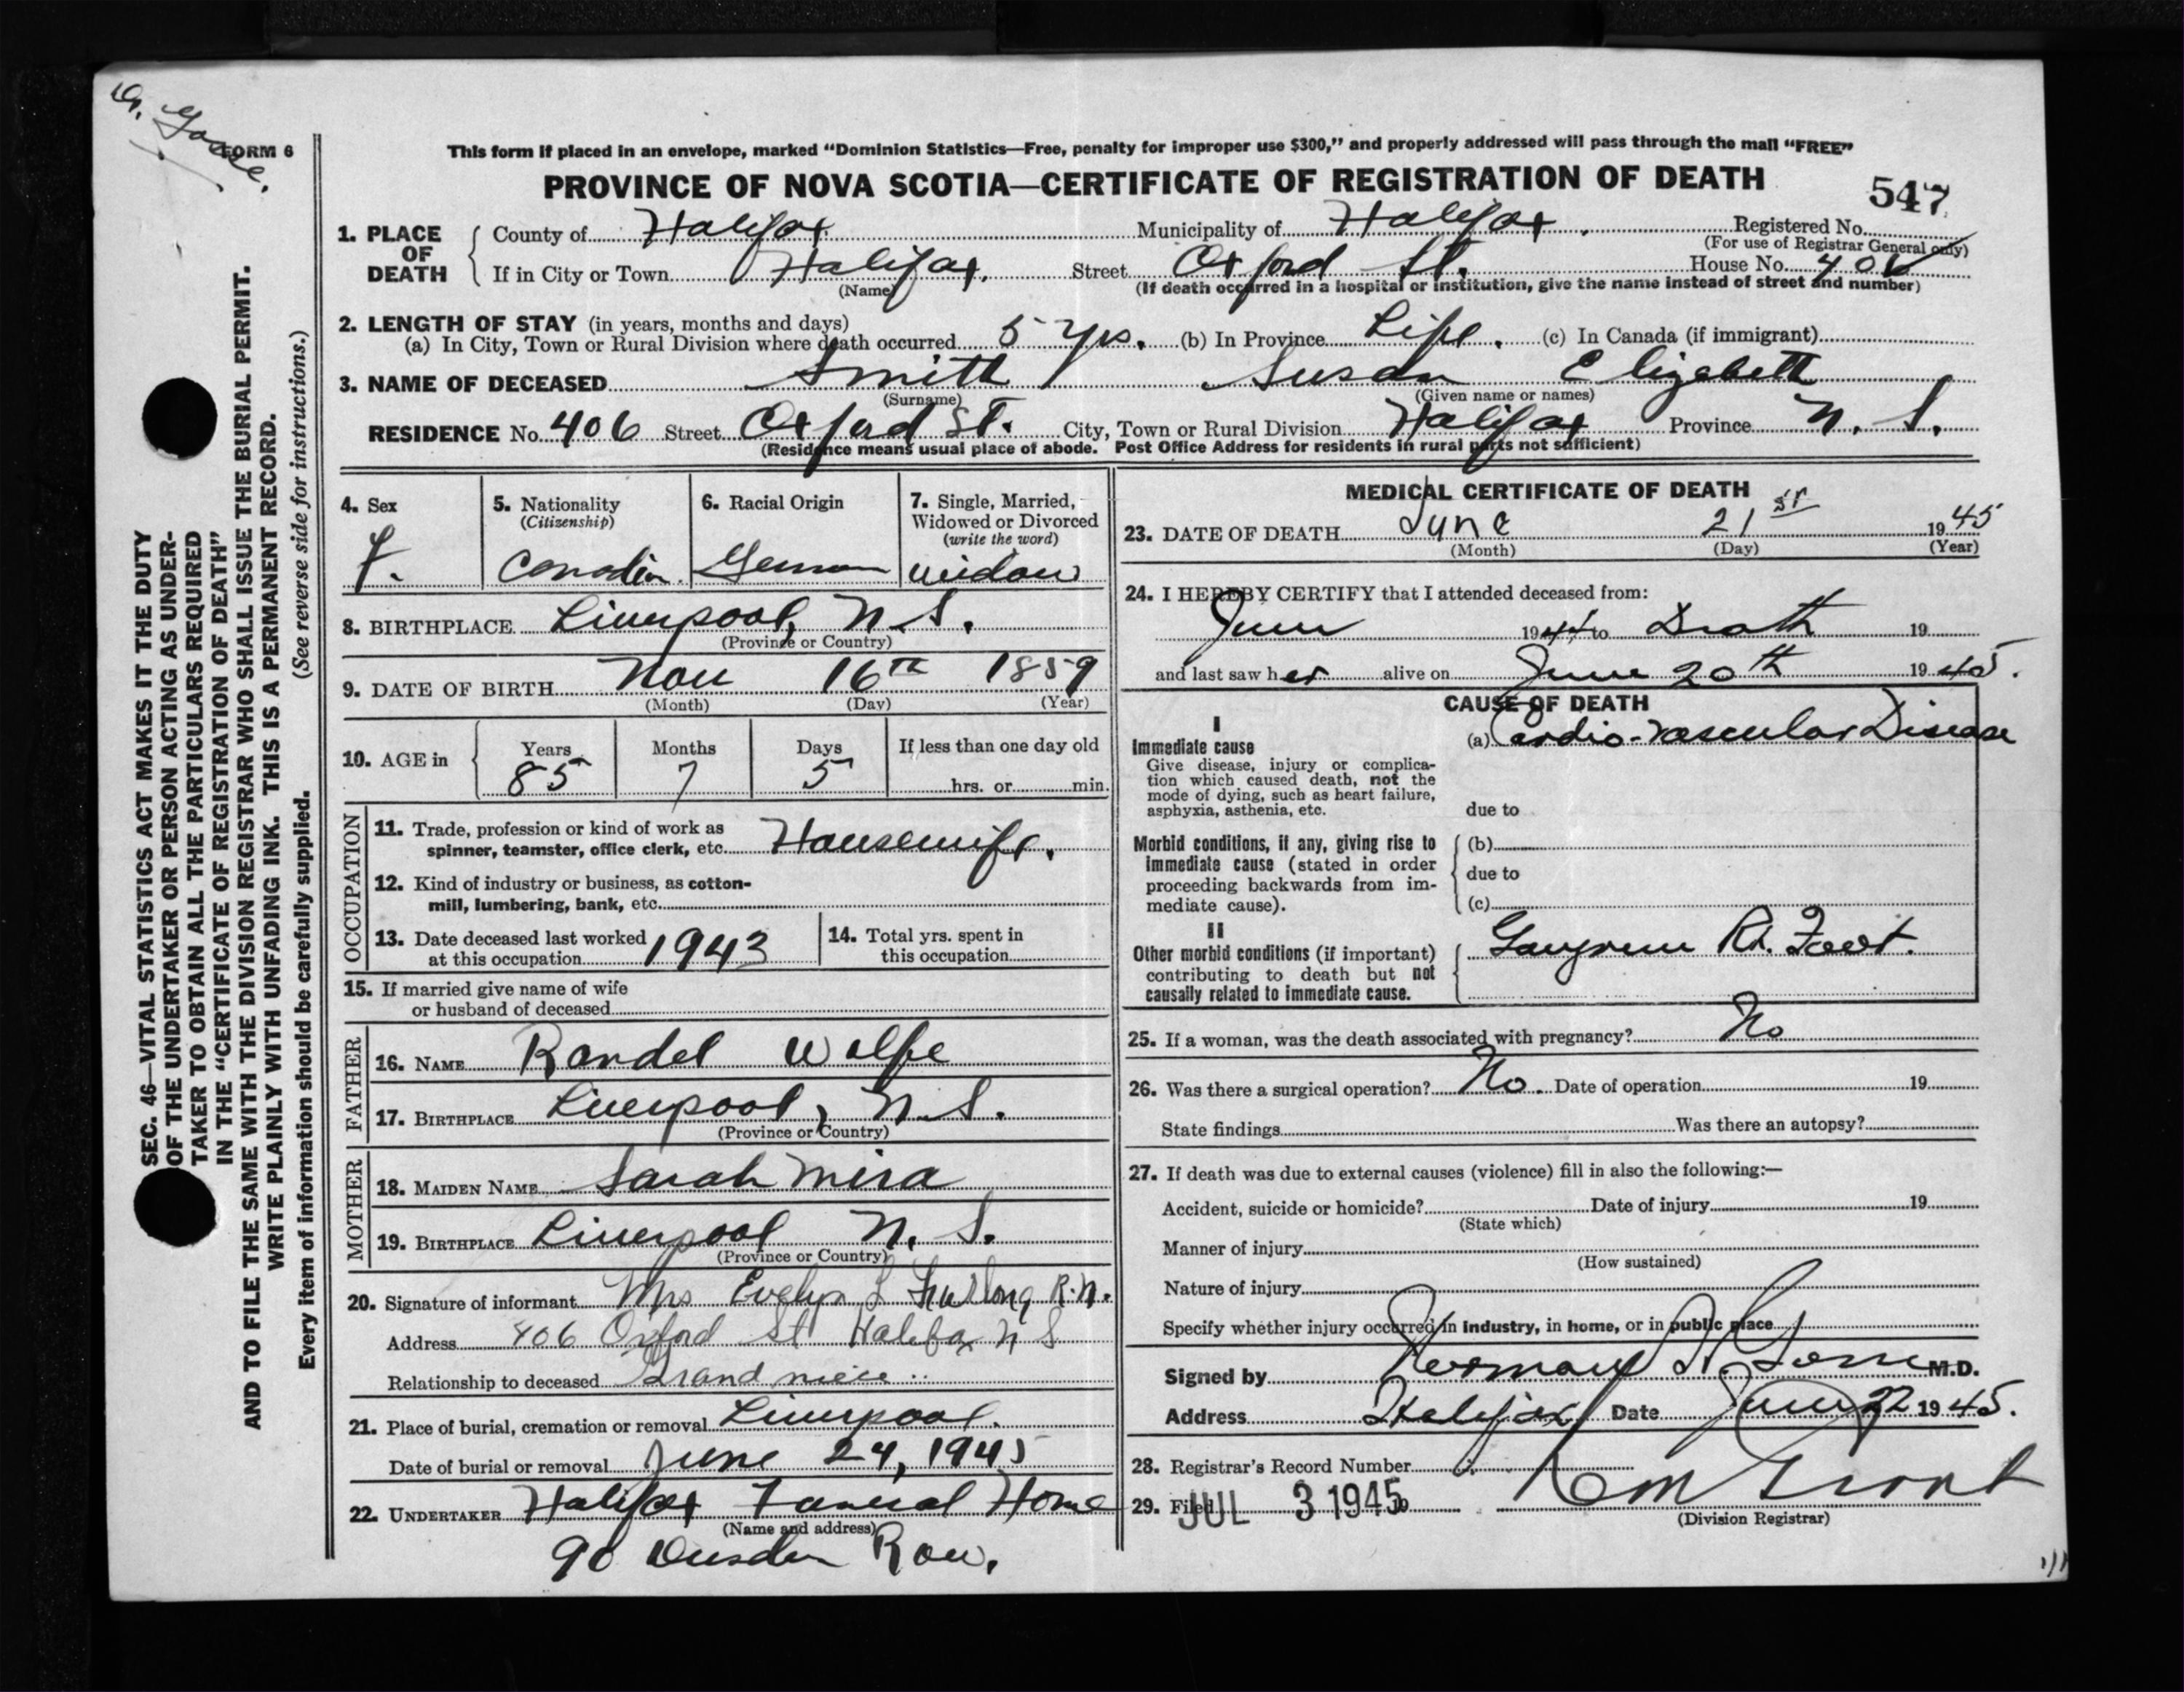 Dr. Gosse.
FORM 6
This form if placed in an envelope, marked “Dominion Statistics—Free, penalty for improper use $300,” and properly addressed will pass through the mail “FREE”
PROVINCE OF NOVA SCOTIA—CERTIFICATE OF REGISTRATION OF DEATH
547
1. PLACE OF DEATH { County of Halifax Municipality of Halifax. Registered No.
(For use of Registrar General only)
If in City or Town Halifax. Street Oxford St. House No. 406
(Name) (If death occurred in a hospital or institution, give the name instead of street and number)
2. LENGTH OF STAY (in years, months and days)
(a) In City, Town or Rural Division where death occurred 5 yrs. (b) In Province Life. (c) In Canada (if immigrant)
3. NAME OF DECEASED Smith, Susan Elizabeth
(Surname) (Given name or names)
RESIDENCE No. 406 Street Oxford St. City, Town or Rural Division Halifax Province N. S.
(Residence means usual place of abode. Post Office Address for residents in rural parts not sufficient)
4. Sex
f.
5. Nationality
(Citizenship)
Canadian
6. Racial Origin
German
7. Single, Married,
Widowed or Divorced
(write the word)
widow
8. BIRTHPLACE Liverpool, N.S.
(Province or Country)
9. DATE OF BIRTH Nov 16th 1859
(Month) (Day) (Year)
10. AGE in { Years Months Days If less than one day old
85 7 5 hrs. or min.
OCCUPATION
11. Trade, profession or kind of work as
spinner, teamster, office clerk, etc. Housewife.
12. Kind of industry or business, as cotton-
mill, lumbering, bank, etc.
13. Date deceased last worked
at this occupation 1943
14. Total yrs. spent in
this occupation
15. If married give name of wife
or husband of deceased
FATHER
16. NAME Randel Wolfe
17. BIRTHPLACE Liverpool, N.S.
(Province or Country)
MOTHER
18. MAIDEN NAME Sarah Mira
19. BIRTHPLACE Liverpool N. S.
(Province or Country)
20. Signature of informant Mrs Evelyn L Furlong R.N.
Address 406 Oxford St Halifax N S
Relationship to deceased Grand niece
21. Place of burial, cremation or removal Liverpool.
Date of burial or removal June 24, 1945
22. UNDERTAKER Halifax Funeral Home
(Name and address)
90 Row.
MEDICAL CERTIFICATE OF DEATH
23. DATE OF DEATH June 21st 1945
(Month) (Day) (Year)
24. I HEREBY CERTIFY that I attended deceased from:
June 1944 to Death 19
and last saw her alive on June 20th 1945.
CAUSE OF DEATH
I
Immediate cause
Give disease, injury or complica-
tion which caused death, not the
mode of dying, such as heart failure,
asphyxia, asthenia, etc.
(a) Cardio-vascular Disease
due to
Morbid conditions, if any, giving rise to
immediate cause (stated in order
proceeding backwards from im-
mediate cause).
(b)
due to
(c)
II
Other morbid conditions (if important)
contributing to death but not
causally related to immediate cause.
Gangrene Rt. Foot.
25. If a woman, was the death associated with pregnancy? No
26. Was there a surgical operation? No. Date of operation 19
State findings Was there an autopsy?
27. If death was due to external causes (violence) fill in also the following:—
Accident, suicide or homicide? Date of injury 19
(State which)
Manner of injury
(How sustained)
Nature of injury
Specify whether injury occurred in industry, in home, or in public place
Signed by Norman H. Gosse M.D.
Address Halifax Date June 22 1945.
28. Registrar's Record Number
29. Filed JUL 3 1945 19
Grant
(Division Registrar)
SEC. 46—VITAL STATISTICS ACT MAKES IT THE DUTY
OF THE UNDERTAKER OR PERSON ACTING AS UNDER-
TAKER TO OBTAIN ALL THE PARTICULARS REQUIRED
IN THE “CERTIFICATE OF REGISTRATION OF DEATH”
AND TO FILE THE SAME WITH THE DIVISION REGISTRAR WHO SHALL ISSUE THE BURIAL PERMIT.
WRITE PLAINLY WITH UNFADING INK. THIS IS A PERMANENT RECORD.
Every item of information should be carefully supplied. (See reverse side for instructions.)